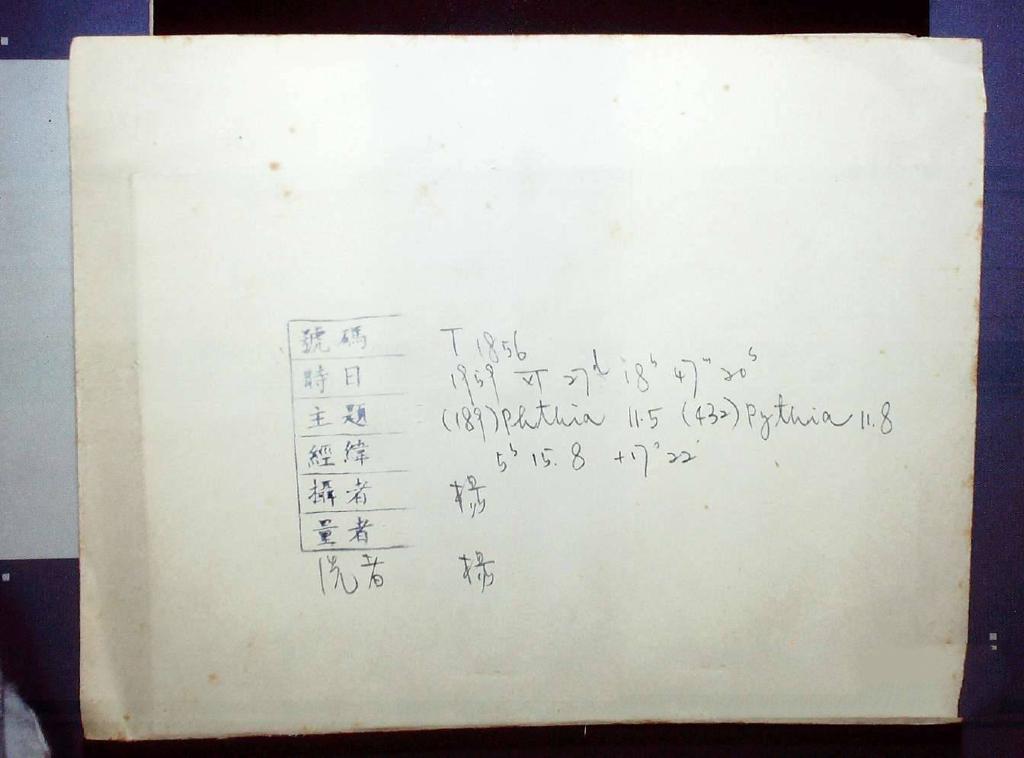 號碼 T 1856
時日 1959 XI 27d 18h 47m 20s
主題 (189) Phthia 11.5 (432) Pythia 11.8
經緯 5h 15.8 +17°22'
攝者 楊
量者
洗者 楊